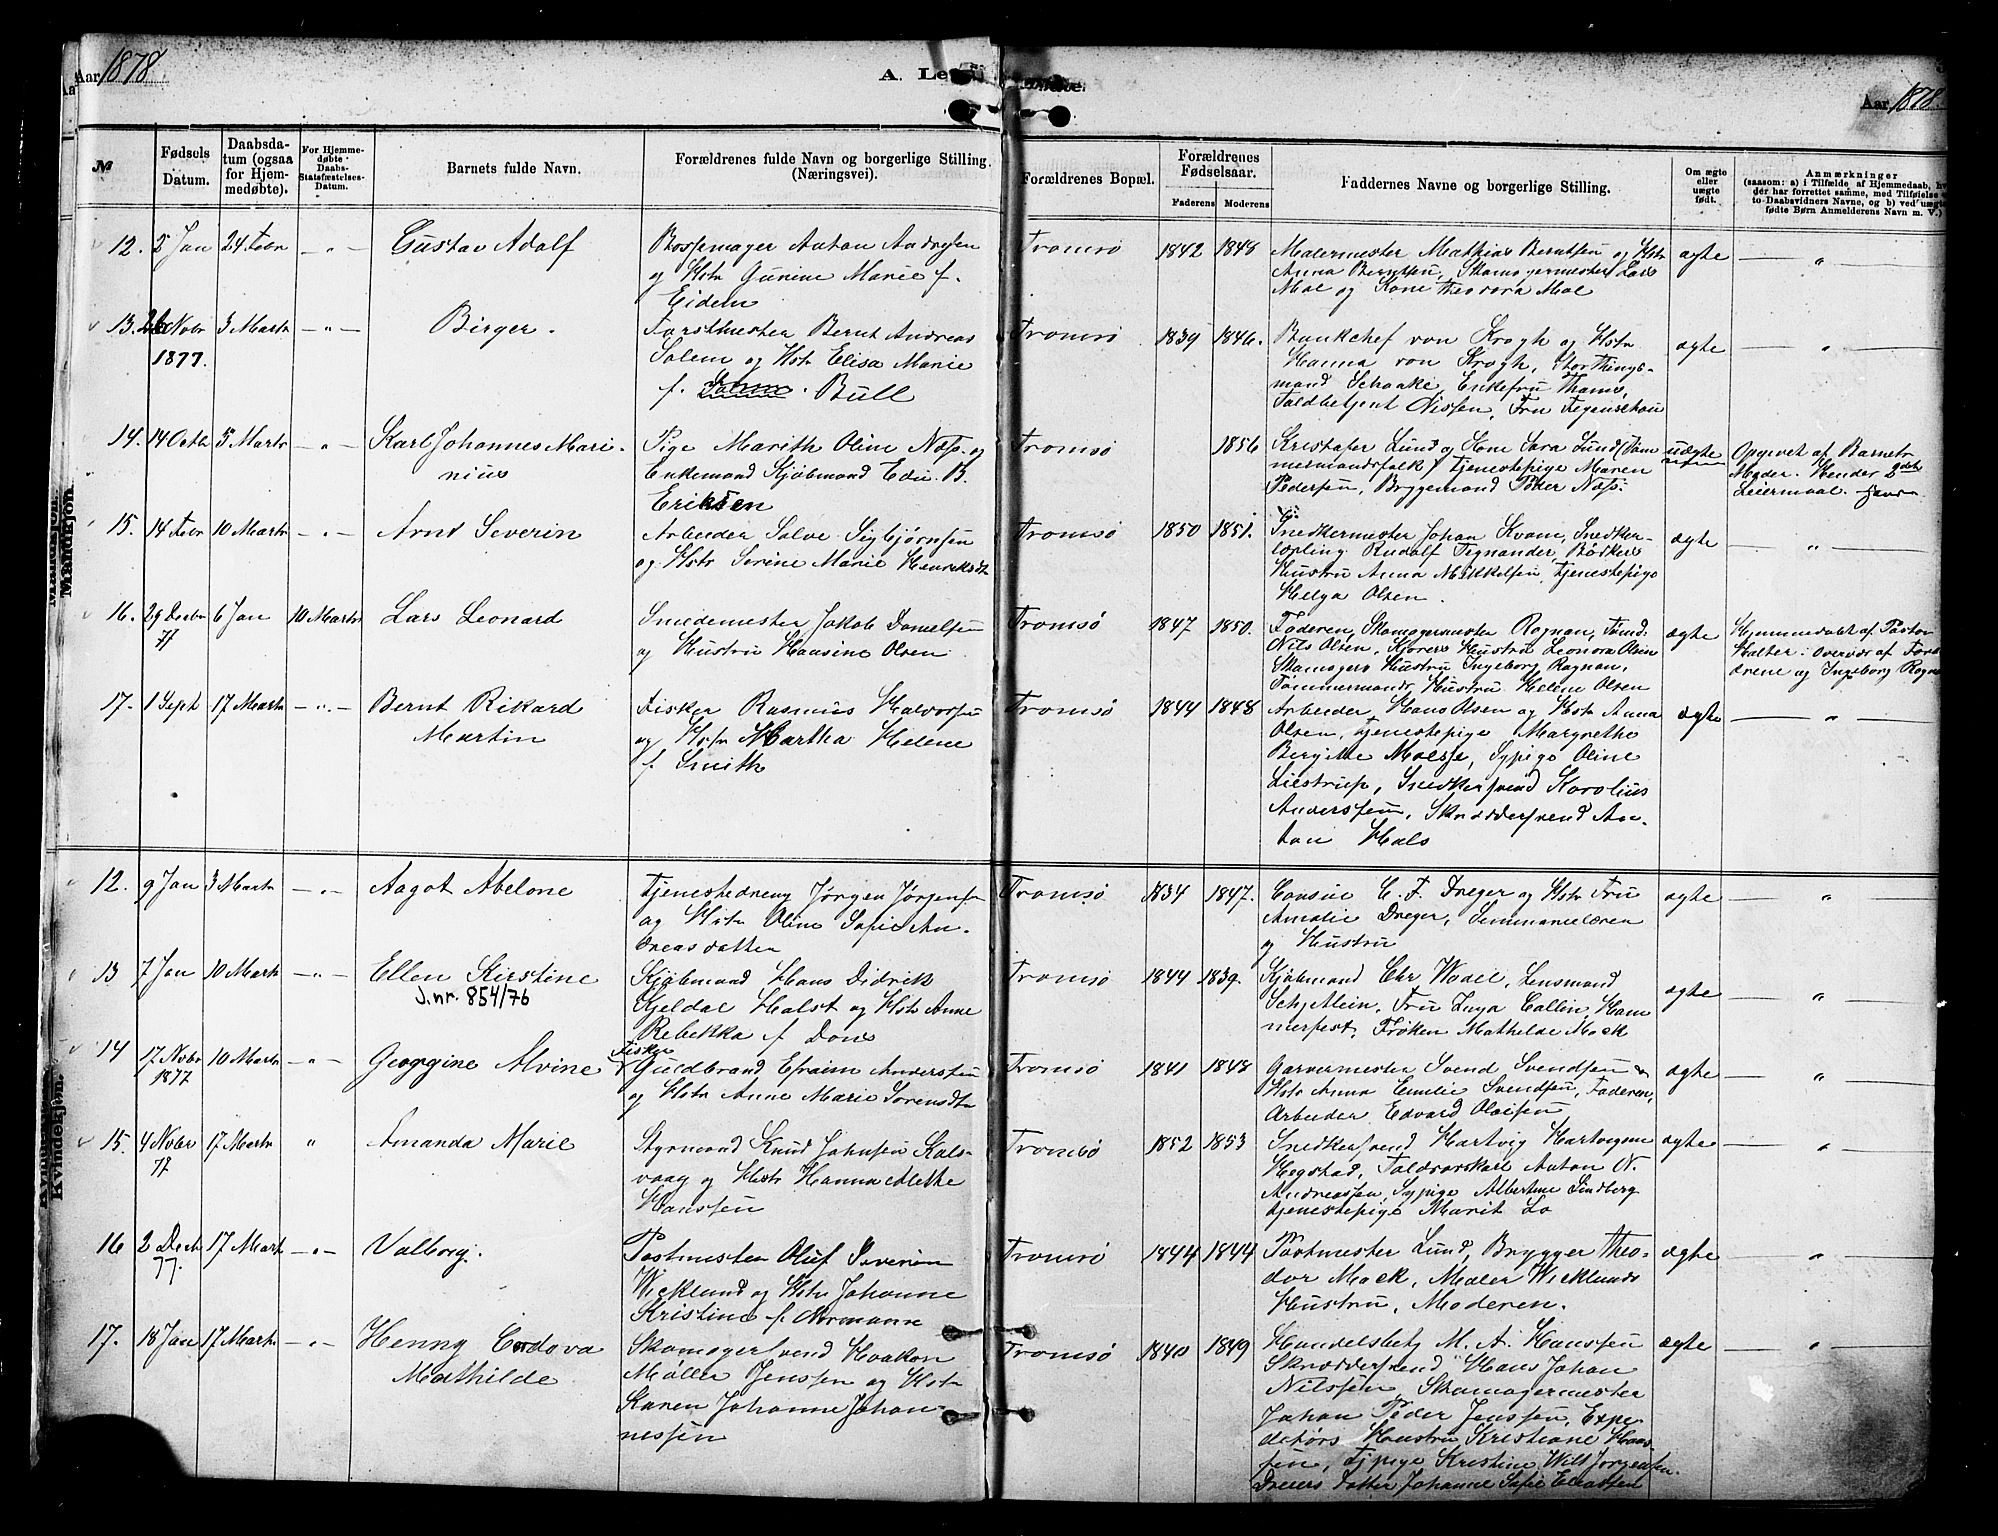 Aar 1878
A. Le
Aar 1878.
№
Fødsels Datum.
Daabsdatum (ogsaa for Hjemmedøbte).
For Hjemmedøbte Daabs-Stadfæstelses-Datum.
Barnets fulde Navn.
Forældrenes fulde Navn og borgerlige Stilling. (Næringsvei).
Forældrenes Bopæl.
Forældrenes Fødselsaar.
Faderens
Moderens
Faddernes Navne og borgerlige Stilling.
Om ægte eller uægte født.
Anmærkninger
(saasom: a) i Tilfælde af Hjemmedaab, hv
der har forrettet samme, med Tilføielse
to Daabsvidners Navne, og b) ved uægte
fødte Børn Anmelderens Navn m. V.)
Mandkjøn
12. 2 Jan 24 Febr - " - Gustav Adolf
Anton Andresen
og Hstr Gunine Marie f.
Eidem
Tromsø 1842 1848
Malermester Mathias Berntsen og Hstr
Anna Berntsen, Skomagermester Lars
Moe og Kone Theodora Moe
ægte - " -
13. 26 Novbr 1877. 3 Marts - " - Birger.
Forstmester Bernt Andreas
Salem og Hstr Elisa Marie
f. Bull
Tromsø 1839 1846.
Bankchef von Krogh og Hstr
Hanna von Krogh, Storthings-
mand Schaake, Enkefru Thams,
Toldbetjent Nissen, Fru Figenschou
ægte - " -
14. 14 Octb 5 Marts - " - Karl Johannes Mari-
nius
Pige Marith Oline Næss og
Enkemand Kjøbmand Edv. B.
Eriksen
Tromsø 1856
Kristofer Lund og Kone Sara Lund (Tøm-
mermandsfolk) Tjenestepige Maren
Pedersen, Bryggemand Peder Næss.
uægte
Opgivet af Barnets
Moder. Hendes 2det
Leiermaal.
15. 14 Febr 10 Marts - " - Arnt Severin
Arbeider Salve Sigbjørnsen
og Hstr Serine Marie Henriksdtr
Tromsø 1850 1851.
Snedkermester Johan Kvam, Snedker-
lærling Rudolf Tignander, Bødkers
Hustru Anna Mikkelsen, Tjenestepige
Helga Olsen.
ægte - " -
16. 29 Decbr 77 6 Jan 10 Marts Lars Leonard
Smedemester Jakob Danielsen
og Hustru Hansine Olsen
Tromsø 1847 1850.
Faderen, Skomagermester Rognan, Tømd.
Nils Olsen, Kjørers Hustru Leonora Olsen
Skomagers Hustru Ingeborg Rognan,
Tømmermands Hustru Helene Olsen
ægte
Hjemmedøbt af Pastor
Holter i Overvær af Foræl
drene og Ingeborg Rogna
17. 1 Sept 17 Marts - " - Bernt Rikard
Martin
Fisker Rasmus Halvorsen
og Hstr Martha Helene
f. Smith
Tromsø 1844 1848
Arbeider Hans Olsen og Hstr Anna
Olsen, Tjenestepige Margrethe
Bergitte Moesse, Sypige Oline
Liestrup, Snedkersvend Karolius
Anderssen, Skræddersvend An-
ton Hals
ægte - " -
Kvindekjøn
12. 9 Jan 3 Marts - " - Aagot Abelone
Tjenestedreng Jørgen Jørgensen
og Hstr Oline Sofie An-
dreasdatter
Tromsø 1834 1847.
Consul C. F. Dreger og Hstr Fru
Amalie Dreger, Seminarielærer
og Hustru
ægte - " -
13 7 Jan 10 Marts - " - Ellen Kirstine
J.nr. 854/76
Kjøbmand Hans Didrik
Kjeldal Holst og Hstr Anne
Rebekka f. Dons
Tromsø 1844 1839.
Kjøbmand Chr Wadel, Lensmand
Schjtlein, Fru Inga Collin, Ham-
merfest, Frøken Mathilde Mack
ægte - " -
14 17 Novbr 1877 10 Marts - " - Georgine Alvine
Fisker
Guldbrand Efraim Anderssen
og Hstr Anne Marie Sørensdtr
Tromsø 1841 1848
Garvermester Svend Svendsen og
Hstr Anna Emilie Svendsen, Faderen,
Arbeider Edvard Olaisen
ægte - " -
15. 4 Novbr 77 17 Marts " Amanda Marie
Styrmand Knud Johnsen Kals-
vaag og Hstr Hanna Alethe
Hanssen
Tromsø 1852 1853
Snedkersvend Hartvig Hartvigsen
Hegstad, Toldrorskarl Anton N.
Andreassen, Sypige Albertine Lindberg
Tjenestepige Marit Lo
ægte - " -
16 2 Decb 77. 17 Mart - " - Valborg.
Postmester Oluf Severin
Wicklund og Hstr Johanne
Kristine f. Normann
Tromsø 1844 1844
Postmester Lund, Brygger Theo-
dor Mack, Maler Wicklunds
Hustru, Moderen.
ægte - " -
17. 18 Jan 17 Marts - " - Henny Cordova
Mathilde
Skomagersvend Haakon
Møller Jenssen og Hstr
Karen Johanne Johan-
nessen
Tromsø 1840 1849
Handelsbetj M. A. Hanssen
Skræddersvend Hans Johan
Nilssen, Skomagermester
Johan Peder Jenssen, Expe-
ditørs Hustru Kristiane Hans-
sen, Sypige Kristine Will Jørgensen
Dreiers Datter Johanne Sofie Eliassen
ægte - " -